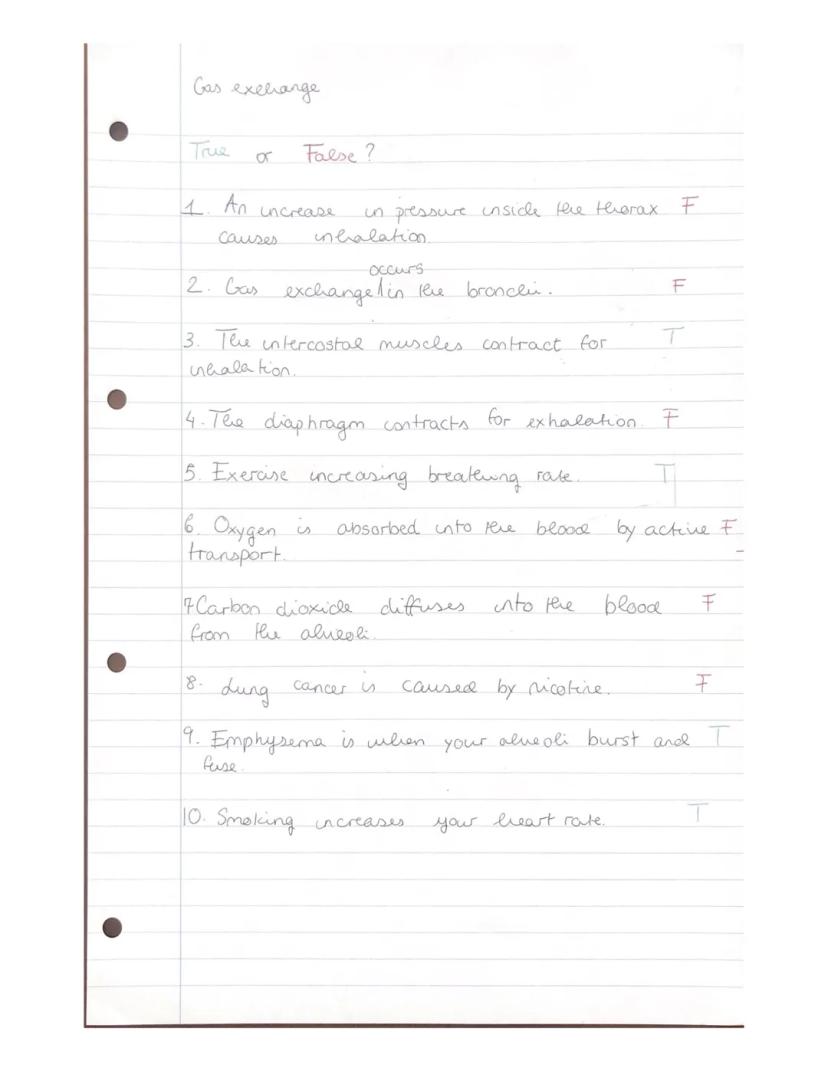 Gas exchange
True or False?
1. An increase in pressure inside the thorax F
causes inhalation.
occurs
2. Gas exchange in the bronchi. F
3. The intercostal muscles contract for T
inhalation.
4. The diaphragm contracts for exhalation. F
5. Exercise increasing breathing rate. T
6. Oxygen is absorbed into the blood by active F
transport.
7 Carbon dioxide diffuses into the blood F
from the alveoli.
8. Lung cancer is caused by nicotine. F
9. Emphysema is when your alveoli burst and T
fuse.
10. Smoking increases your heart rate. T